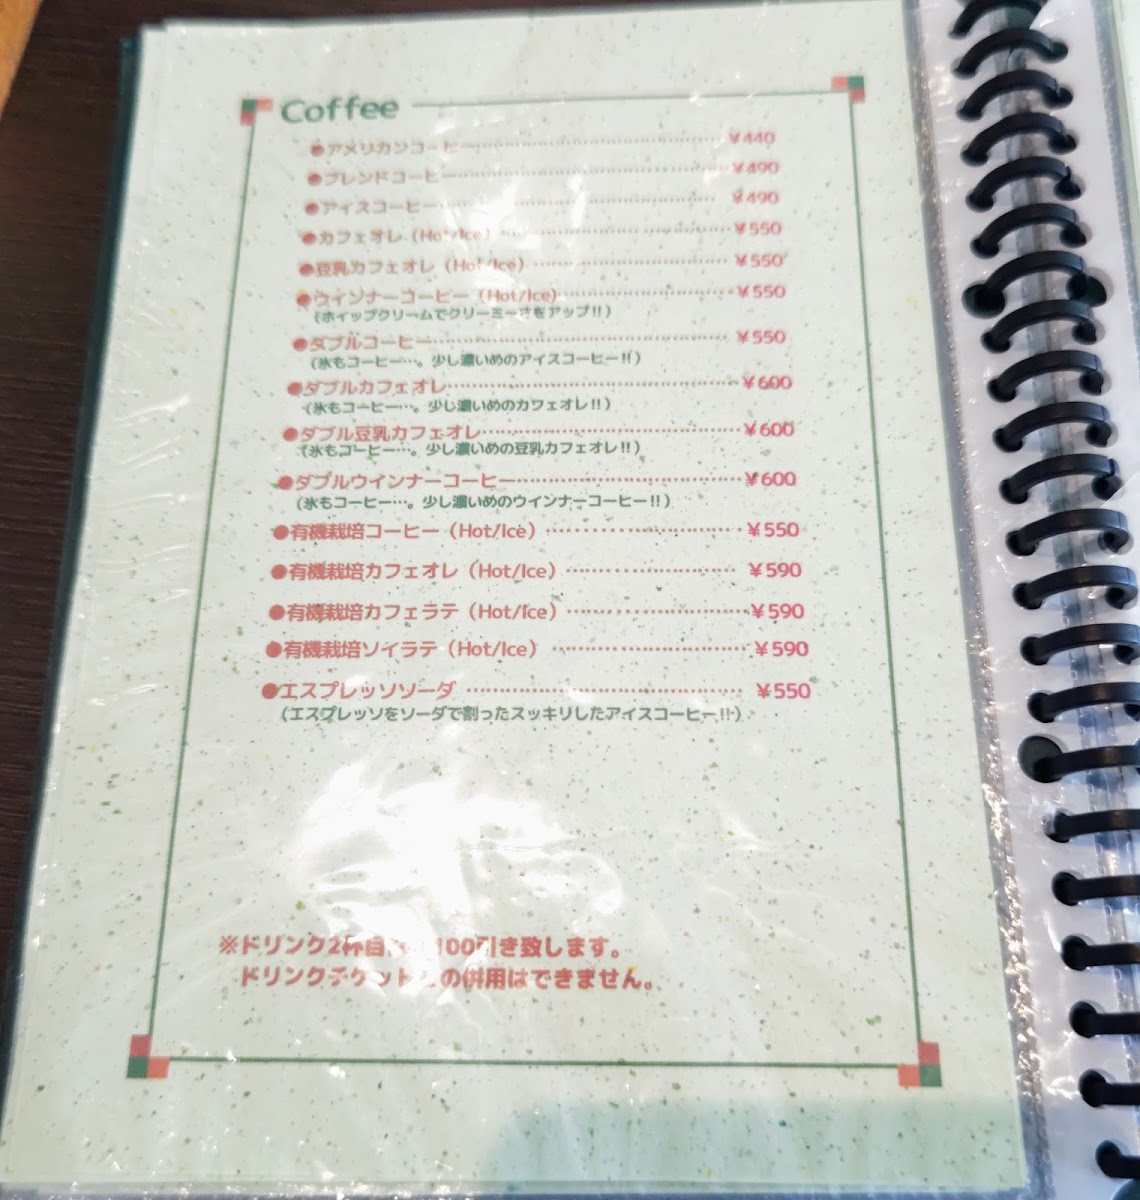 Coffee
●アメリカンコーヒー ¥440
●ブレンドコーヒー ¥490
●アイスコーヒー ¥490
●カフェオレ(Hot/Ice) ¥550
●豆乳カフェオレ(Hot/Ice) ¥550
●ウインナーコーヒー(Hot/Ice) ¥550
(ホイップクリームでクリーミーさをアップ!!)
●ダブルコーヒー ¥550
(氷もコーヒー…。少し濃いめのアイスコーヒー!!)
●ダブルカフェオレ ¥600
(氷もコーヒー…。少し濃いめのカフェオレ!!)
●ダブル豆乳カフェオレ ¥600
(氷もコーヒー…。少し濃いめの豆乳カフェオレ!!)
●ダブルウインナーコーヒー ¥600
(氷もコーヒー…。少し濃いめのウインナーコーヒー!!)
●有機栽培コーヒー(Hot/Ice) ¥550
●有機栽培カフェオレ(Hot/Ice) ¥590
●有機栽培カフェラテ(Hot/Ice) ¥590
●有機栽培ソイラテ(Hot/Ice) ¥590
●エスプレッソソーダ ¥550
(エスプレッソをソーダで割ったスッキリしたアイスコーヒー!!)
※ドリンク2杯目 100引き致します。
ドリンクチケット の併用はできません。